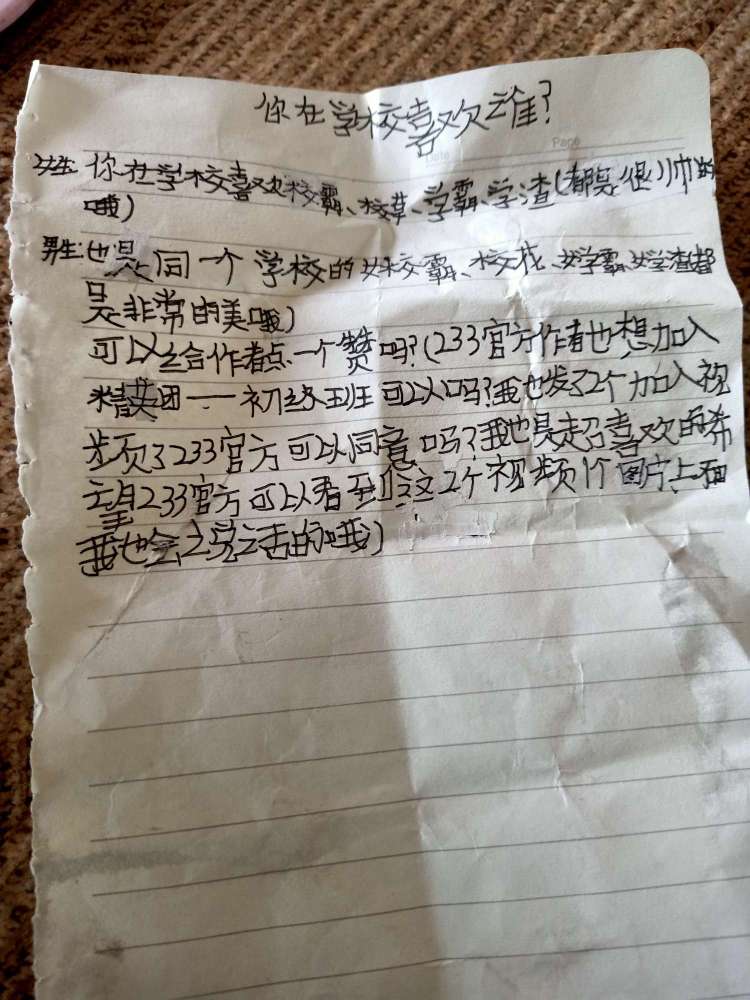 你在学校喜欢谁?
Date
Page
女生: 你在学校喜欢校霸、校草、学霸、学渣(都是很)帅的
哦)
男生: 也是同一个学校的女校霸、校花、女学霸、女学渣都
是非常的美哦)
可以给作者点一个赞吗?(233官方作者也想加入
精英团——初级班可以吗?我也发了2个加入视
频了233官方可以同意吗?我也是超喜欢的希
望233官方可以看到这2个视频1个图片上面
我也会说话的哦)